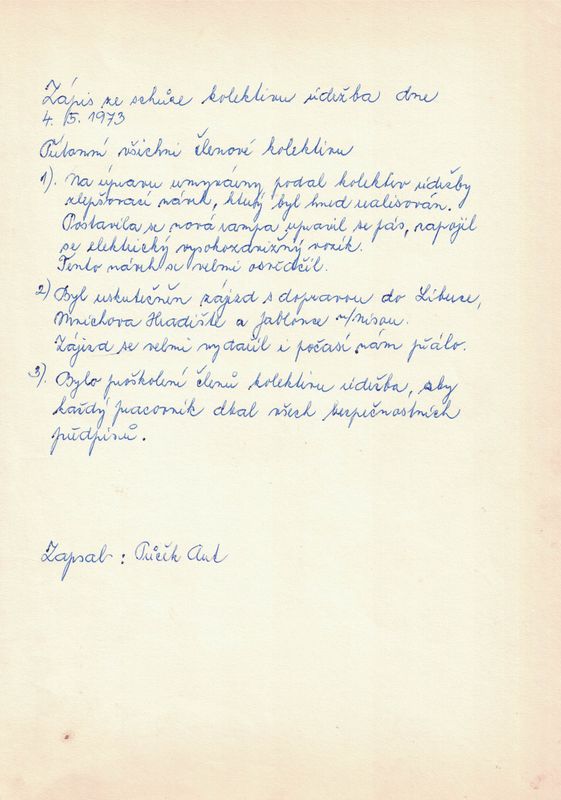 Zápis ze schůze kolektivu údržba dne
4. /5. 1973
Přítomní všichni členové kolektivu
1). Na úpravu umyvárny, podal kolektiv údržby
zlepšovací návrh, který byl hned realisován.
Postavila se nová rampa upravil se pás, napojil
se elektrický vysokozdvižný vozík.
Tento návrh se velmi osvědčil.
2) Byl uskutečněn zájezd s dopravou do Liberce,
Mnichova Hradiště a Jablonce n/Nisou.
Zájezd se velmi vydařil i počasí nám přálo.
3). Bylo proškolení členů kolektivu údržba, aby
každý pracovník dbal všech bezpečnostních
předpisů.
Zapsal : Ant